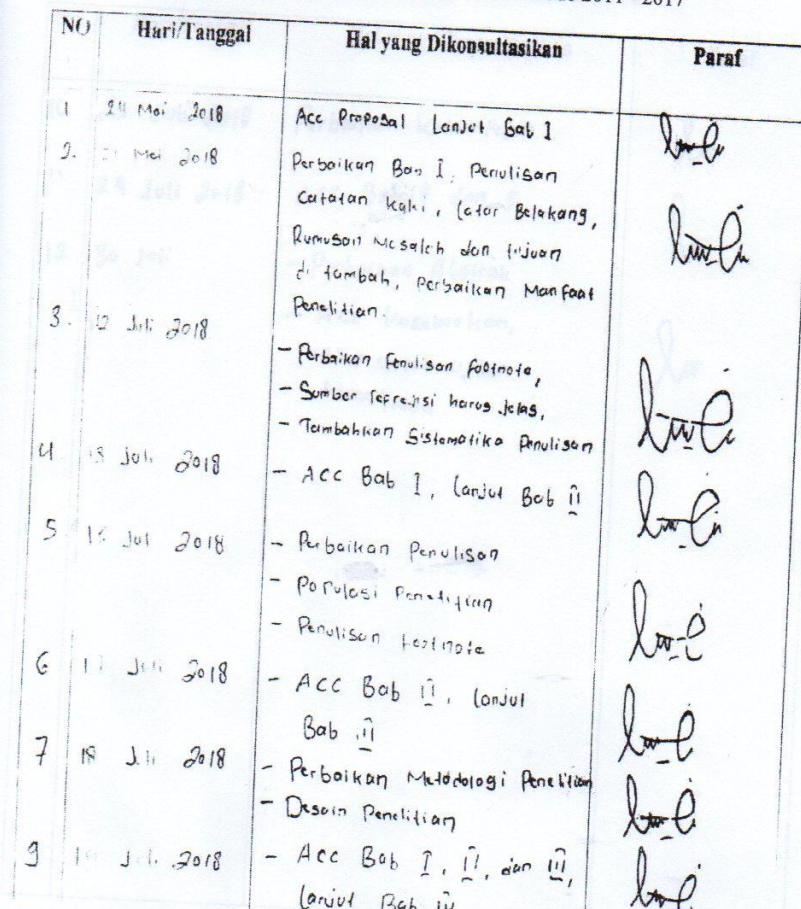 2011 - 2017
NO Hari/Tanggal Hal yang Dikonsultasikan Paraf
24 Mei 2018 Acc Proposal Lanjut Bab I
2. Mei 2018 Perbaikan Bab I, Penulisan
catatan kaki, latar Belakang,
Rumusan Masalah dan tujuan
di tambah, Perbaikan Manfaat
Penelitian.
3. 12 Juli 2018
- Perbaikan Penulisan footnote,
- Sumber referensi harus jelas,
- Tambahkan Sistematika Penulisan
4 13 Juli 2018 - ACC Bab I, lanjut Bab II
5 Juli 2018 - Perbaikan Penulisan
- Populasi Penelitian
- Penulisan footnote
6 Juli 2018 - ACC Bab II, lanjut
Bab III
7 18 Juli 2018 - Perbaikan Metodologi Penelitian
- Desain Penelitian
9 Juli 2018 - ACC Bab I, II, dan III,
lanjut Bab IV